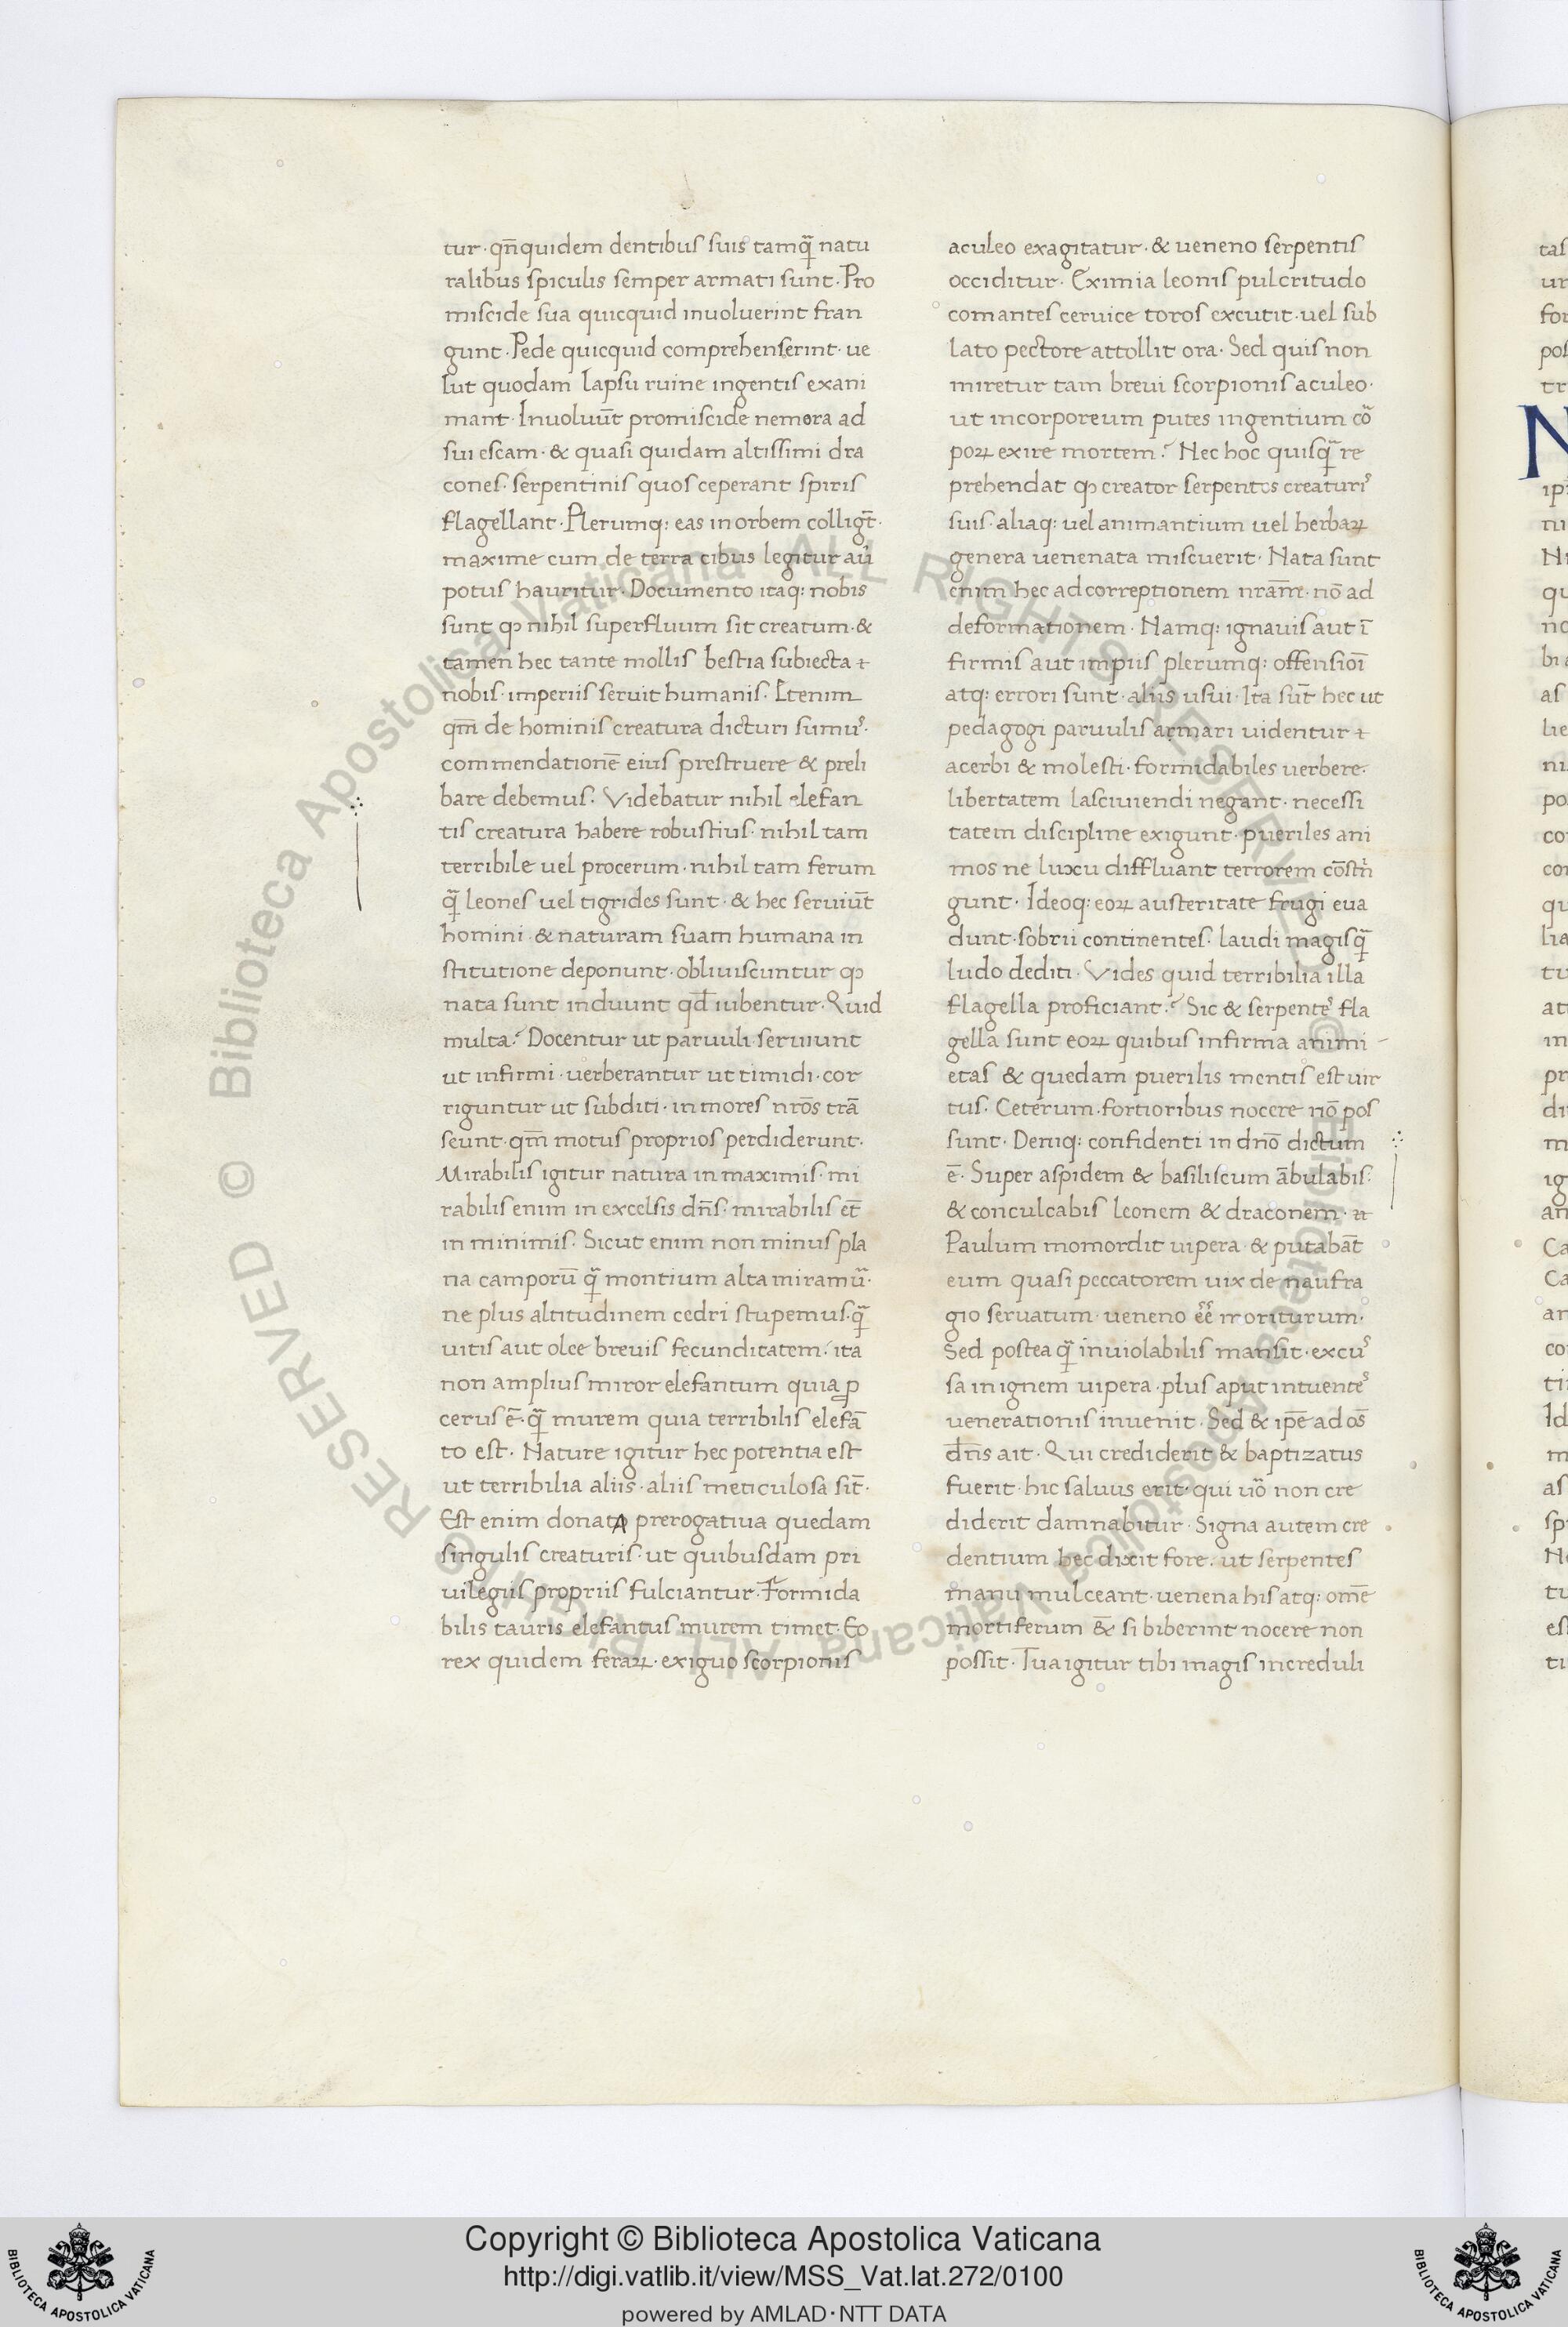 tur · qn̄quidem dentibus suis tamq̃ natu
ralibus spiculis semper armati sunt · Pro
miscide sua quicquid inuoluerint fran
gunt · Pede quicquid comprehenserint · ue
lut quodam lapsu ruine ingentis exani
mant · Inuoluūt promiscide nemora ad
sui escam · & quasi quidam altissimi dra
cones · serpentinis quos ceperant spiris
flagellant · Plerumq: eas in orbem colligt̄ ·
maxime cum de terra cibus legitur aū
potus hauritur · Documento itaq: nobis
sunt ꝙ nihil superfluum sit creatum · &
tamen hec tante mollis bestia subiecta ÷
nobis · imperiis seruit humanis · Etenim
qm̄ de hominis creatura dicturi sumuꝰ ·
commendationē eius prestruere & preli
bare debemus · Videbatur nihil elefan
tis creatura habere robustius · nihil tam
terribile uel procerum · nihil tam ferum
q̃ leones uel tigrides sunt · & hec seruiūt
homini · & naturam suam humana in
stitutione deponunt · obliuiscuntur ꝙ
nata sunt induunt qd̄ iubentur · Quid
multa? Docentur ut paruuli · seruiunt
ut infirmi · uerberantur ut timidi · cor
riguntur ut subditi · in mores nr̄os trā
seunt · qm̄ motus proprios perdiderunt ·
Mirabilis igitur natura in maximis · mi
rabilis enim in excelsis dn̄s · mirabilis et̄
in minimis · Sicut enim non minus pla
na camporū q̃ montium alta miramur̃ ·
ne plus altitudinem cedri stupemus · q̃
uitis aut olee breuis fecunditatem? ita
non amplius miror elefantum quia ꝓ
cerus ē · q̃ murem quia terribilis elefā
to est · Nature igitur hec potentia est
ut terribilia aliis · aliis meticulosa sit̄ ·
Est enim donatA prerogatiua quedam
singulis creaturis · ut quibusdam pri
uilegiis propriis fulciantur · Formida
bilis tauris elefantus murem timet · Eo
rex quidem feraꝝ · exiguo scorpionis
aculeo exagitatur · & ueneno serpentis
occiditur · Eximia leonis pulcritudo
comantes ceruice toros excutit · uel sub
lato pectore attollit ora · Sed quis non
miretur tam breui scorpionis aculeo ·
ut incorporeum putes ingentium cõ
poꝝ exire mortem? Nec hoc quisq̃ re
prehendat ꝙ creator serpentes creaturiꝰ
suis · aliaq: uel animantium uel herbaꝝ
genera uenenata miscuerit · Nata sunt
enim hec ad correptionem nrām · nō ad
deformationem · Namq: ignauis aut ī
firmis aut impiis plerumq: offensioī
atq: errori sunt · aliis usui · Ita sūt hec ut
pedagogi paruulis armari uidentur ÷
acerbi & molesti · formidabiles uerbere ·
libertatem lasciuiendi negant · necessi
tatem discipline exigunt · pueriles ani
mos ne luxu diffluant terrorem cōstri
gunt · Ideoq: eoꝝ austeritate frugi eua
dunt · sobrii continentes · laudi magisq̃
ludo dediti · Vides quid terribilia illa
flagella proficiant? Sic & serpenteꝰ fla
gella sunt eoꝝ quibus infirma animi
etas & quedam puerilis mentis est uir
tus · Ceterum fortioribus nocere nō pos
sunt · Deniq: confidenti in dn̄o dictum
ē · Super aspidem & basiliscum ābulabis:
& conculcabis leonem & draconem ·
Paulum momordit uipera · & putabāt
eum quasi peccatorem uix de naufra
gio seruatum · ueneno eē̃ moriturum ·
Sed postea q̃ inuiolabilis mansit · excuꝰ
sa in ignem uipera · plus aput intuenteꝰ
uenerationis inuenit · Sed & ip̄e ad os̄
dn̄s ait · Qui crediderit & baptizatus
fuerit · hic saluus erit · qui uõ non cre
diderit damnabitur · Signa autem cre
dentium hec dixit fore · ut serpentes
manu mulceant · uenena his atq: om̄e
mortiferum &̄ si biberint nocere non
possit · Tua igitur tibi magis increduli
Copyright © Biblioteca Apostolica Vaticana
http://digi.vatlib.it/view/MSS_Vat.lat.272/0100
powered by AMLAD · NTT DATA
BIBLIOTECA APOSTOLICA VATICANA
BIBLIOTECA APOSTOLICA VATICANA
© Biblioteca Apostolica Vaticana ALL RIGHTS RESERVED © Biblioteca Apostolica Vaticana ALL RIGHTS RESERVED